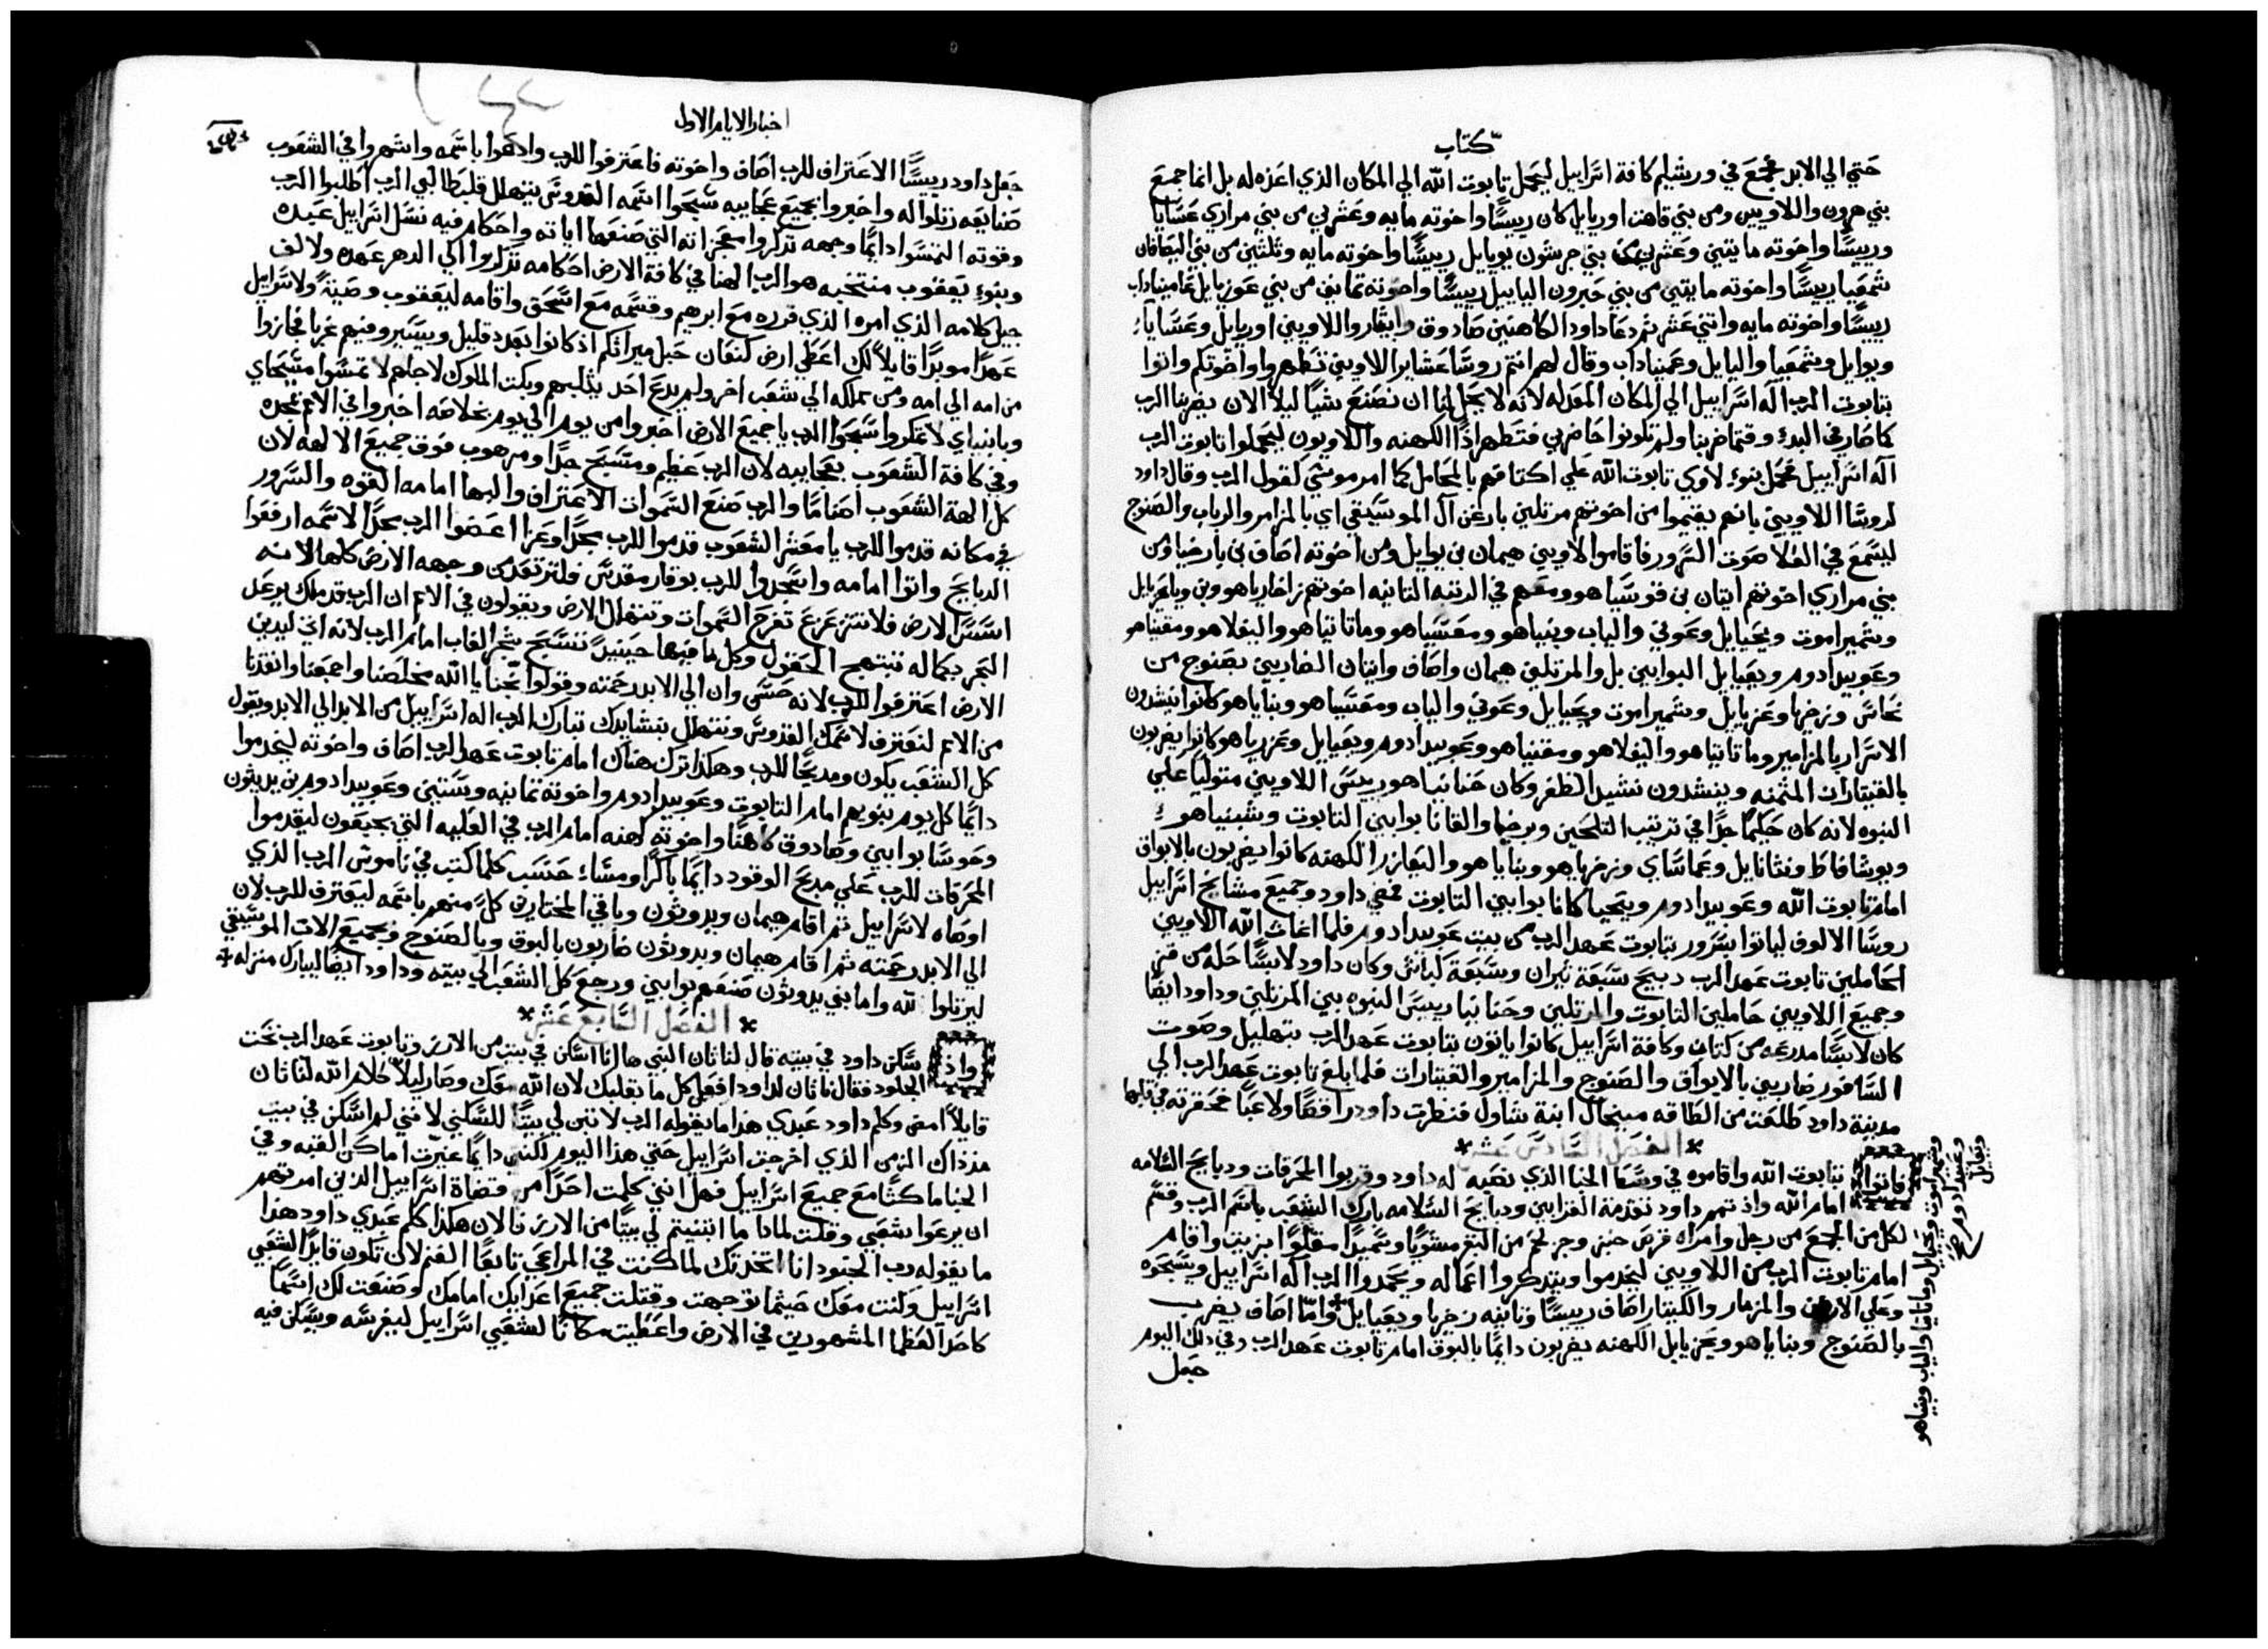 كتاب
حتي الي الابد فجمع في ورشليم كافة اسراييل ليحمل تابوت الله الي المكان الذي اعده له بل انما جميع
بني هرون واللاويين ومن بني قاهت اوريايل كان رييسًا واخوته مايه وعشرين من بني مراري عسايا
ورييسًا واخوته مايتين وعشرين من بني جرشون يويايل رييسًا واخوته مايه وثلثين من بني اليصافان
شمعيا رييسًا واخوته مايتين من بني حبرون الياييل رييسًا واخوته ثمانين من بني عوزيايل عاميناداب
رييسًا واخوته مايه واثني عشر ثم دعا داود الكاهنين صادوق وابيثار واللاويين اوريايل وعسايا
ويوايل وشمعيا واليايل وعميناداب وقال لهم انتم روسا عشاير اللاويين تطهروا واخوتكم واتوا
بتابوت الرب اله اسراييل الي المكان المعد له لانه لا يحل لنا ان نصنع شيًا ليلا الان يضربنا الرب
كما صار في البدء وقتما ضربنا ولم تكونوا حاضرين فتطهر اذًا الكهنه واللاويون ليحملوا تابوت الرب
اله اسراييل فحمل بنوء لاوي تابوت الله علي اكتافهم بالمحامل كما امر موسي لقول الرب وقال داود
لروسا اللاويين بانهم يقيموا من اخوتهم مرتلين بارغن آل الموسيقي اي بالمزامر والرباب والصنوج
ليسمع في العلا صوت السرور فاقاموا لاويين هيمان بن يوايل ومن اخوته اصاف بن بارخيا ومن
بني مراري اخوتهم ايتان بن قوسيا هو ومعهم في الرتبه الثانيه اخوتهم زاخارياهو وبن وياعزيايل
وشميراموت ويحيايل وعوني والياب وبنياهو ومعسياهو وماتاتياهو واليفلاهو ومقنياهو
وعوبيدادوم ويعيايل البوابين بل والمرتلين هيمان واصاف وايتان الضاربين بصنوج من
نحاس وزخريا وعزيايل وشميراموت ويحيايل وعوني والياب ومعسياهو وبناياهو كانوا ينشدون
الاسرار بالمزامير وماتاتياهو واليفلاهو ومقنياهو وعوبيدادوم ويعيايل وعزرياهو كانوا يضربون
بالقيتارات المثمنه وينشدون نشيد الظفر وكان حنانياهو رييس اللاويين متوليًا علي
النبوه لانه كان حكيمًا جدًا في ترتيب التلحين وبرخيا والقانا بوابين التابوت وشبنياهو
ويوشافاط ونثانايل وعماساي وزخرياهو وبناياهو واليعازر الكهنه كانوا يضربون بالابواق
امام تابوت الله وعوبيدادوم ويحيا كانا بوابين التابوت فمضي داود وجميع مشايخ اسراييل
روسا الالوف لياتوا بسرور بتابوت عهد الرب من بيت عوبيدادوم فلما اغاث الله اللاويين
الحاملين تابوت عهد الرب ذبيح سبعة تيران وسبعة كبائش وكان داود لابسًا حله من قز
وجميع اللاويين حاملين التابوت والمرتلين وحنانيا رييس النبوه بين المرتلين وداود ايضًا
كان لابسًا مدرعه من كتان وكافة اسراييل كانوا ياتون بتابوت عهد الرب بتهليل وصوت
السافور ضاربين بالابواق والصنوج والمزامير والقيتارات فلما بلغ تابوت عهد الرب الي
مدينة داود طلعت من الطاقه ميخال ابنة شاول فنظرت داود راقصًا ولاعبًا فحقرته في قلبها
الفصل السادس عشر
فاتوا بتابوت الله واقاموه في وسط الخبا الذي نصبه له داود وقربوا المحرقات ودبايح السلامه
امام الله واذ تمم داود تقدمة القرابين ودبايح السلامه بارك الشعب باسم الرب وقسم
لكل من الجمع من رجل وامراه قرص خبز وجز لحم من البقر مشويًا وسميدًا مقلوًا بزيت واقام
امام تابوت الرب من اللاويين ليخدموا ويتذكروا اعماله ويمجدوا الرب اله اسراييل ويسبحوه
وعلي الارغن والمزمار والكيثار اصاف رييسًا وثانيه زخريا ويعيايل واما اصاف يضرب
بالصنوج وبناياهو ويحزيايل الكهنه يضربون دايمًا بالبوق امام تابوت عهد الرب وفي ذلك اليوم
جعل
وشميراموت ويحيايل وماتاتيا والياب وبنياهو
وعوبيدادوم
ويعيايل
اخبار الايام الاول
جعل داود رييسًا الاعتراف للرب اصاف واخوته فاعترفوا للرب وادعوا باسمه واشهروا في الشعوب
صنايعه رتلوا له واخبروا بجميع عجايبه سبحوا اسمه القدوس يتهلل قلب طالبي الرب اطلبوا الرب
وقوته التمسوا دايمًا وجهه تذكروا معجزاته التي صنعها اياته واحكام فيه نسل اسراييل عبده
وبنوء يعقوب منتخبه هو الرب الهنا في كافة الارض احكامه تذكروا الي الدهر عهده ولالف
جيل كلامه الذي امره الذي قرره مع ابرهيم وقسمه مع اسحق واقامه ليعقوب وصيةً ولاسراييل
عهدًا موبدًا قايلاً لك اعطي ارض كنعان حبل ميراثكم اذ كانوا بعدد قليل ويسير وفيهم غربا فجازوا
من امه الي امه ومن مملكه الي شعب اخر ولم يدع احد يثلبهم وبكت الملوك لاجلهم لا تمسوا مسحاي
وبانبياي لا تمكروا سبحوا الرب يا جميع الارض اخبروا من يوم الي يوم بخلاصه اخبروا في الامم مجده
وفي كافة الشعوب بعجايبه لان الرب عظيم ومسبح جدًا ومرهوب فوق جميع الالهه لان
كل الهة الشعوب اصنامًا والرب صنع السموات الاعتراف والبها امامه القوه والسرور
في مكانه قدموا للرب يا معشر الشعوب قدموا للرب مجدًا وعزا اعطوا الرب مجدًا لاسمه ارفعوا
الدبايح واتوا امامه واسجدوا للرب بوقار مقدس فلترتعد من وجهه الارض كلها لانه
اسس الارض فلا تتزعزع تفرح السموات وتتهلل الارض ويقولون في الامم ان الرب قد ملك يرعد
البحر بكماله تبتهج الحقول وكل ما فيها حينيذً تسبح شجر الغاب امام الرب لانه اتي ليدين
الارض اعترفوا للرب لانه حسن وان الي الابد رحمته وقولوا نجنا يا الله مخلصنا واجمعنا وانقذنا
من الامم لنعترف لاسمك القدوس ونتهلل بنشايدك تبارك الرب اله اسراييل من الابد الي الابد ويقول
كل الشعب يكون ومديحًا للرب وهكذا ترك هناك امام تابوت عهد الرب اصاف واخوته ليخدموا
دايمًا كل يوم بنوبهم امام التابوت وعوبيدادوم واخوته ثمانيه وستين وعوبيدادوم بن يديثون
وحوسا بوابين وصادوق كاهنًا واخوته كهنه امام الرب في العليه التي بجبعون ليقدموا
المحرقات للرب علي مدبح الوقود دايمًا باكرًا ومساءً حسب كلما كتب في ناموس الرب الذي
اوصاه لاسراييل ثم اقام هيمان ويدوثون وباقي المختارين كلً منهم باسمه ليعترف للرب لان
الي الابد رحمته ثم اقام هيمان ويدوثون ضاربون بالبوق وبالصنوج وجميع الات الموسيقي
ليرتلوا لله واما بني يدوثون صنعهم بوابين ورجع كل الشعب الي بيته وداود ايضًا ليبارك منزله
الفصل السابع عشر
واذ سكن داود في بيته قال لناثان النبي ها انا اسكن في بيت من الارز وتابوت عهد الرب تحت
الجلود فقال ناثان لداود افعل كل ما بقلبك لان الله معك وصار ليلاً كلام الله لناثان
قايلاً امض وكلم داود عبدي هذا ما يقوله الرب لا تبن لي بيتًا للسكني لانني لم اسكن في بيت
منذ ذاك الزمن الذي اخرجت اسراييل حتي هذا اليوم لكنني دايمًا غيرت اماكن القبه وفي
الخبا ماكثًا مع جميع اسراييل فهل انني كلمت احدًا من قضاة اسراييل الذين امرتهم
ان يرعوا شعبي وقلت لماذا ما ابنيتم لي بيتًا من الارز فالان هكذا كلم عبدي داود هذا
ما يقوله رب الجنود انا اتخذتك لما كنت في المراعي تابعًا الغنم لان تكون قايدًا لشعبي
اسراييل وكنت معك حيثما توجهت وقتلت جميع اعدايك امامك وصنعت لك اسمًا
كاحد العظما المشهورين في الارض واعطيت مكانًا لشعبي اسراييل ليغرسه ويسكن فيه